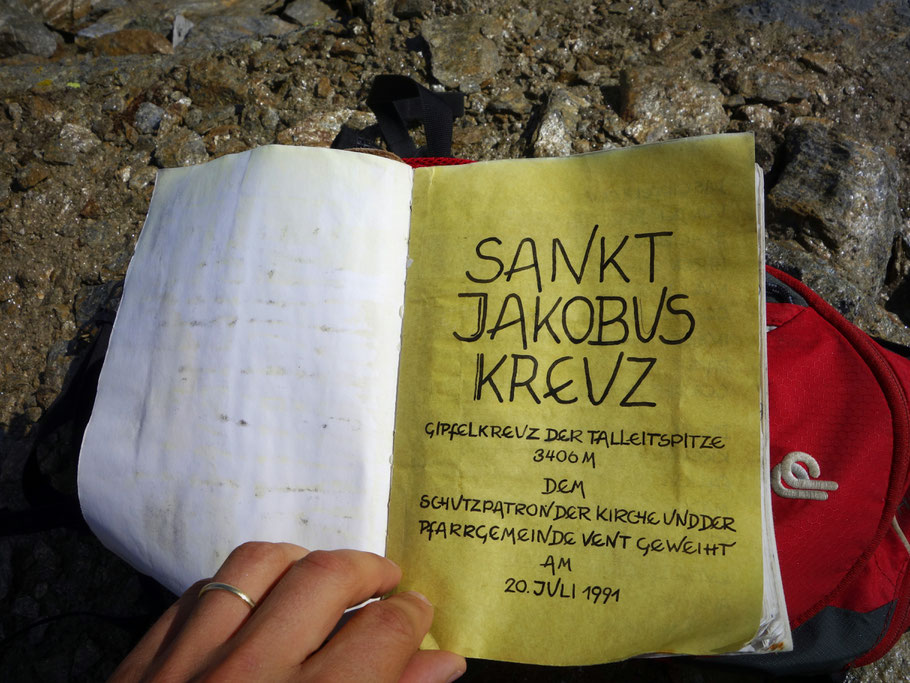 SANKT
JAKOBUS
KREUZ
GIPFELKREUZ DER TALLEITSPITZE
3406 M
DEM
SCHUTZPATRON DER KIRCHE UND DER
PFARRGEMEINDE VENT GEWEIHT
AM
20. JULI 1991